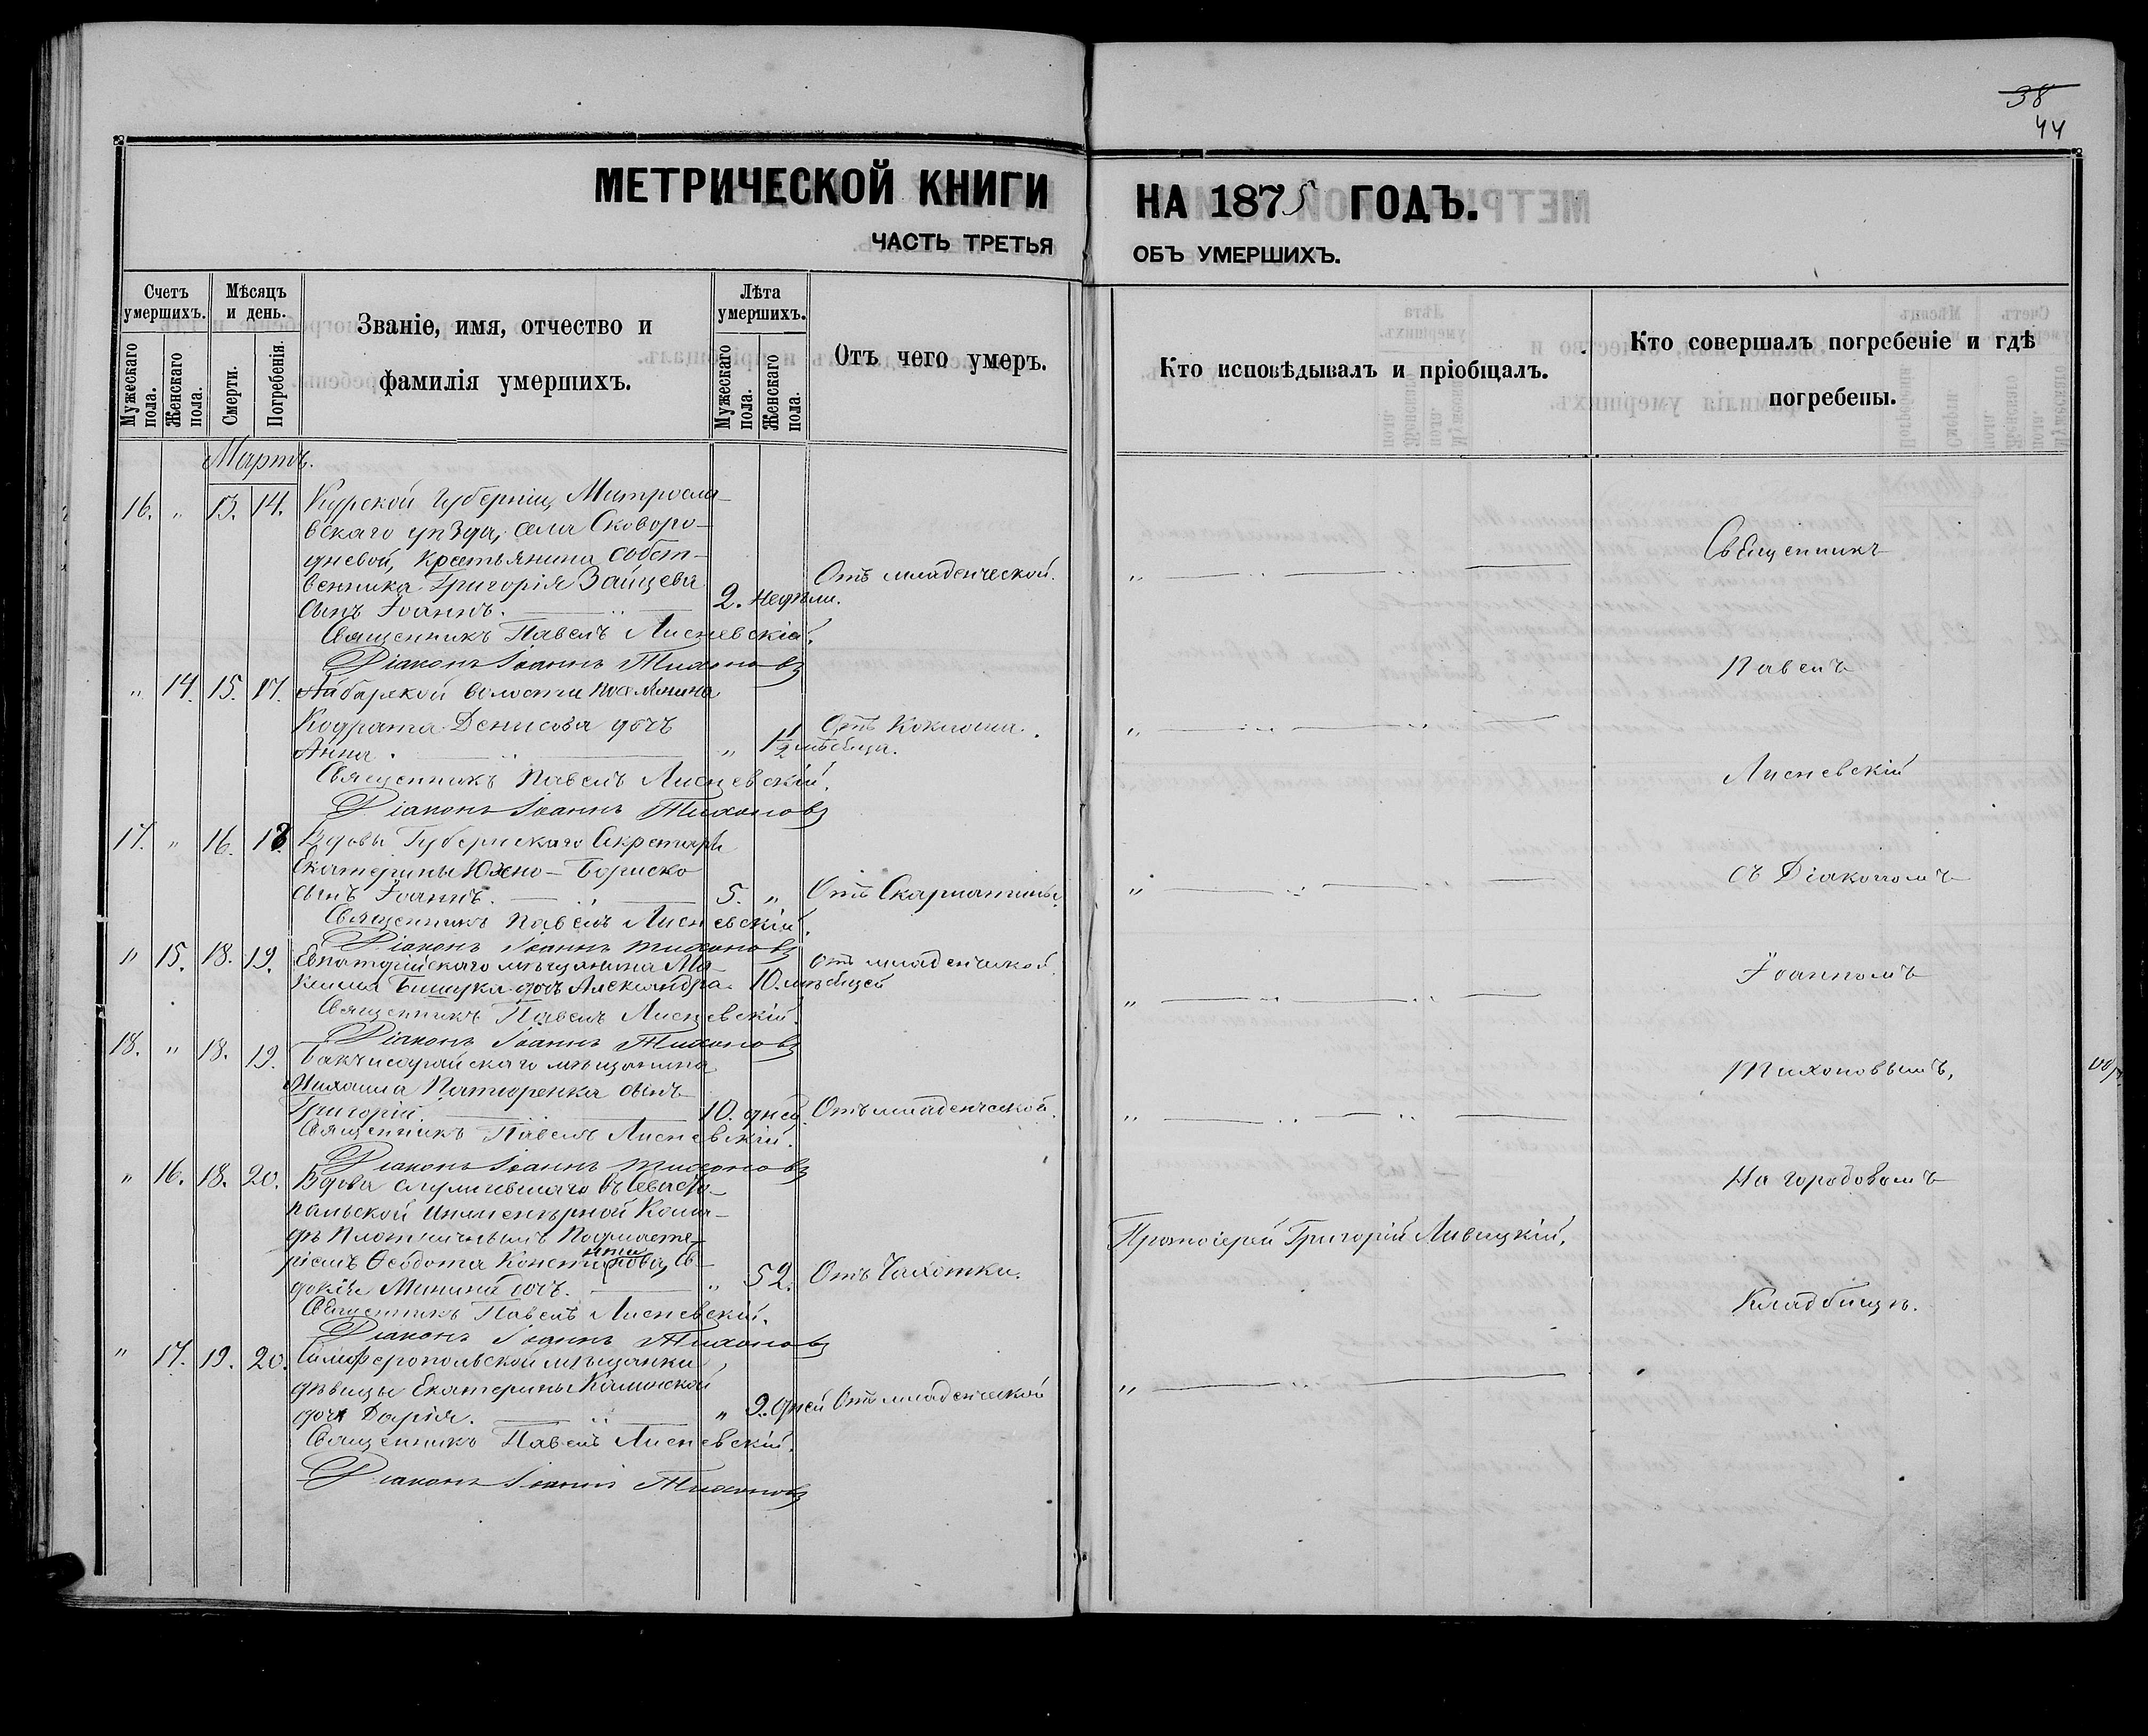 38
44
МЕТРИЧЕСКОЙ КНИГИ
НА 1875 ГОДЪ.
ЧАСТЬ ТРЕТЬЯ
ОБЪ УМЕРШИХЪ.
Счетъ умершихъ.
Мужескаго пола.
Женскаго пола.
Мѣсяцъ и день.
Смерти.
Погребенія.
Званіе, имя, отчество и
фамилія умершихъ.
Лѣта умершихъ.
Мужескаго пола.
Женскаго пола.
Отъ чего умеръ.
Кто исповѣдывалъ и пріобщалъ.
Кто совершалъ погребеніе и гдѣ
погребены.
Мартъ.
16. " 13. 14. Курской Губерніи,
вскаго уѣзда, села Сковоро-
дневой, Крестьянина собст-
венника Григорія Зайцева
сынъ Іоаннъ. 2. недѣли. Отъ младенческой.
Священникъ Павелъ Лисневскій.
Діаконъ Іоаннъ Тихоновъ
" 14. 15. 17. волости поселянина
Кодрата Денисова дочь
Анна. " 1 1/2 мѣсяца. Отъ Коклюша.
Священникъ Павелъ Лисневскій.
Діаконъ Іоаннъ Тихоновъ
17. " 16. 18. Вдовы Губернскаго Секретаря
Екатерины Южно-Бориско
сынъ Іоаннъ. 5. " Отъ Скарлатины.
Священникъ Павелъ Лисневскій.
Діаконъ Іоаннъ Тихоновъ
" 15. 18. 19. Евпаторійскаго мѣщанина Ма-
дочь Александра. 10. мѣсяцей Отъ младенческой.
Священникъ Павелъ Лисневскій.
Діаконъ Іоаннъ Тихоновъ
18. " 18. 19. Бакчисарайскаго мѣщанина
Михаила сынъ
Григорій. 10. дней. Отъ младенческой.
Священникъ Павелъ Лисневскій.
Діаконъ Іоаннъ Тихоновъ
" 16. 18. 20. Вдова служившаго въ Севасто-
польской Инженерной Коман-
дѣ
Ѳеодота Константинова, Ев-
докія Минина дочь. " 52. Отъ Чахотки.
Священникъ Павелъ Лисневскій.
Діаконъ Іоаннъ Тихоновъ
" 17. 19. 20. Симферопольской мѣщанки,
дѣвицы Екатерины Калинской
дочь Дарія. " 9. дней Отъ младенческой
Священникъ Павелъ Лисневскій.
Діаконъ Іоаннъ Тихоновъ
Протоіерей Григорій Ливицкій.
Священникъ
Павелъ
Лисневскій
съ Діакономъ
Іоанномъ
Тихоновымъ,
На городовомъ
Кладбищѣ.